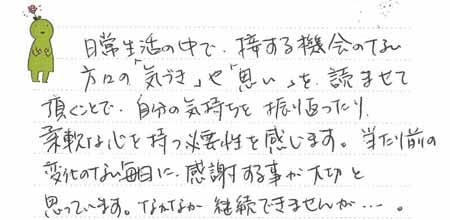 日常生活の中で、接する機会のない
方々の「気づき」や「思い」を、読ませて
頂くことで、自分の気持ちを振り返ったり、
柔軟な心を持つ必要性を感じます。当たり前の
変化のない毎日に、感謝する事が大切と
思っています。なかなか継続できませんが…。